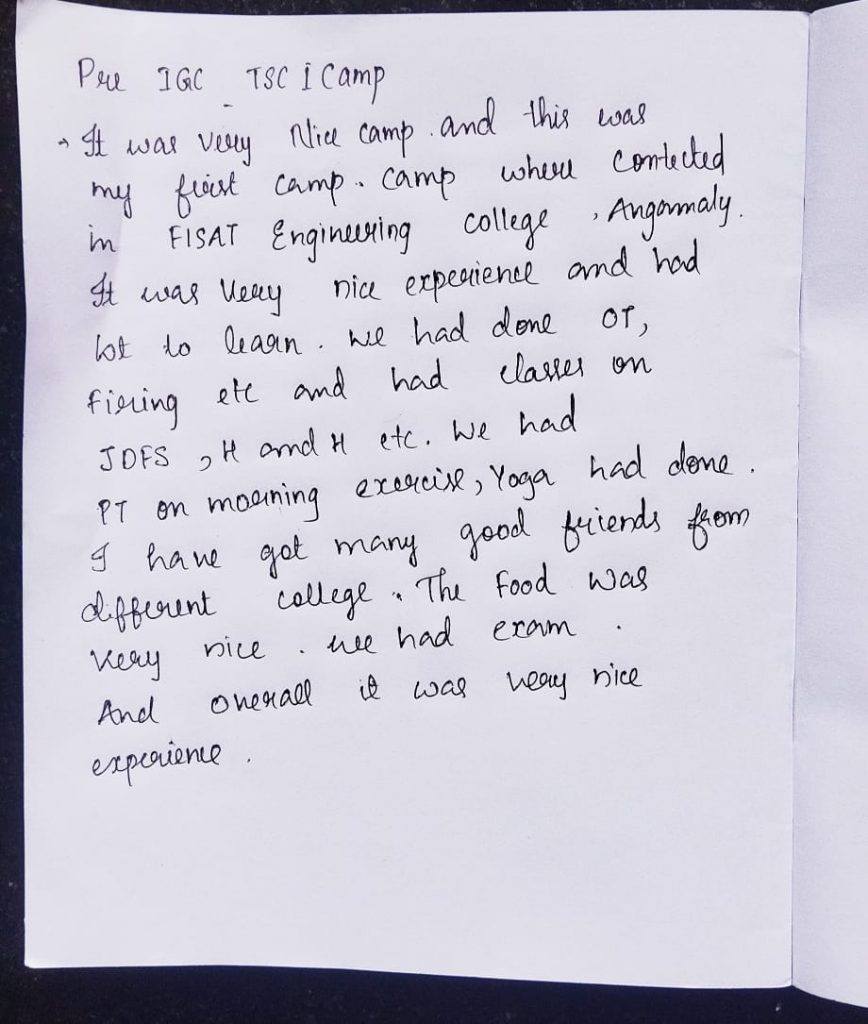 Pre IGC TSC I Camp
→ It was very Nice camp. and this was
my first camp. camp where contected
in FISAT Engineering college, Angammaly.
It was very nice experience and had
lot to learn. we had done OT,
firing etc and had classes on
JDFS, H and H etc. We had
PT on morning exercise, Yoga had done.
I have got many good friends from
different college. The Food was
very nice. we had exam.
And overall it was very nice
experience.